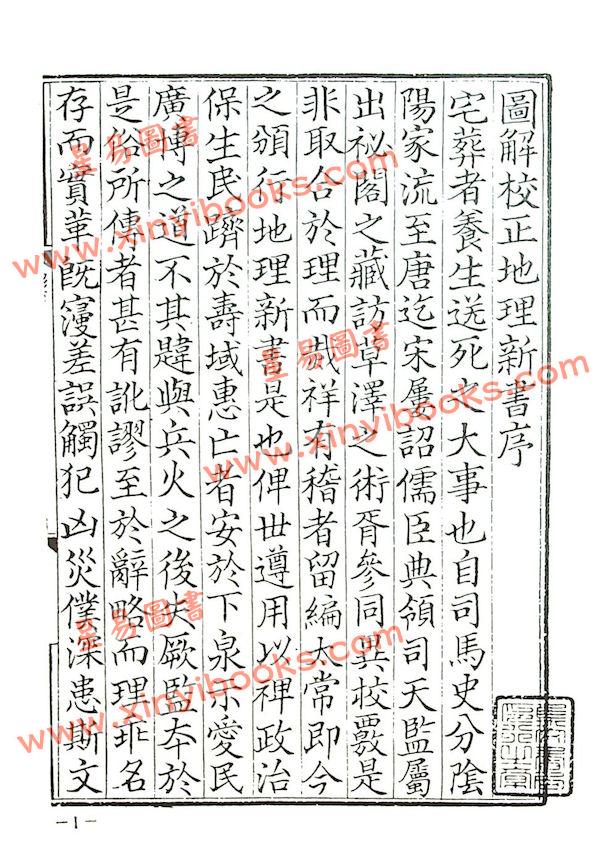 圖解校正地理新書序
宅葬者養生送死之大事也自司馬史分陰
陽家流至唐迄宋屢詔儒臣典領司天監屬
出祕閣之藏訪草澤之術胥參同異挍覈是
非取合於理而烖祥有稽者留編太常即今
之頒行地理新書是也俾世遵用以裨政治
保生民躋於壽域惠亡者安於下泉示愛民
廣博之道不其韙與兵火之後失厥監本於
是俗所傳者甚有訛謬至於辭略而理乖名
存而實革既寖差誤觸犯凶災僕深患斯文
-1-
星易圖書
www.xinyibooks.com
星易圖書
www.xinyibooks.com
星易圖書
www.xinyibooks.com